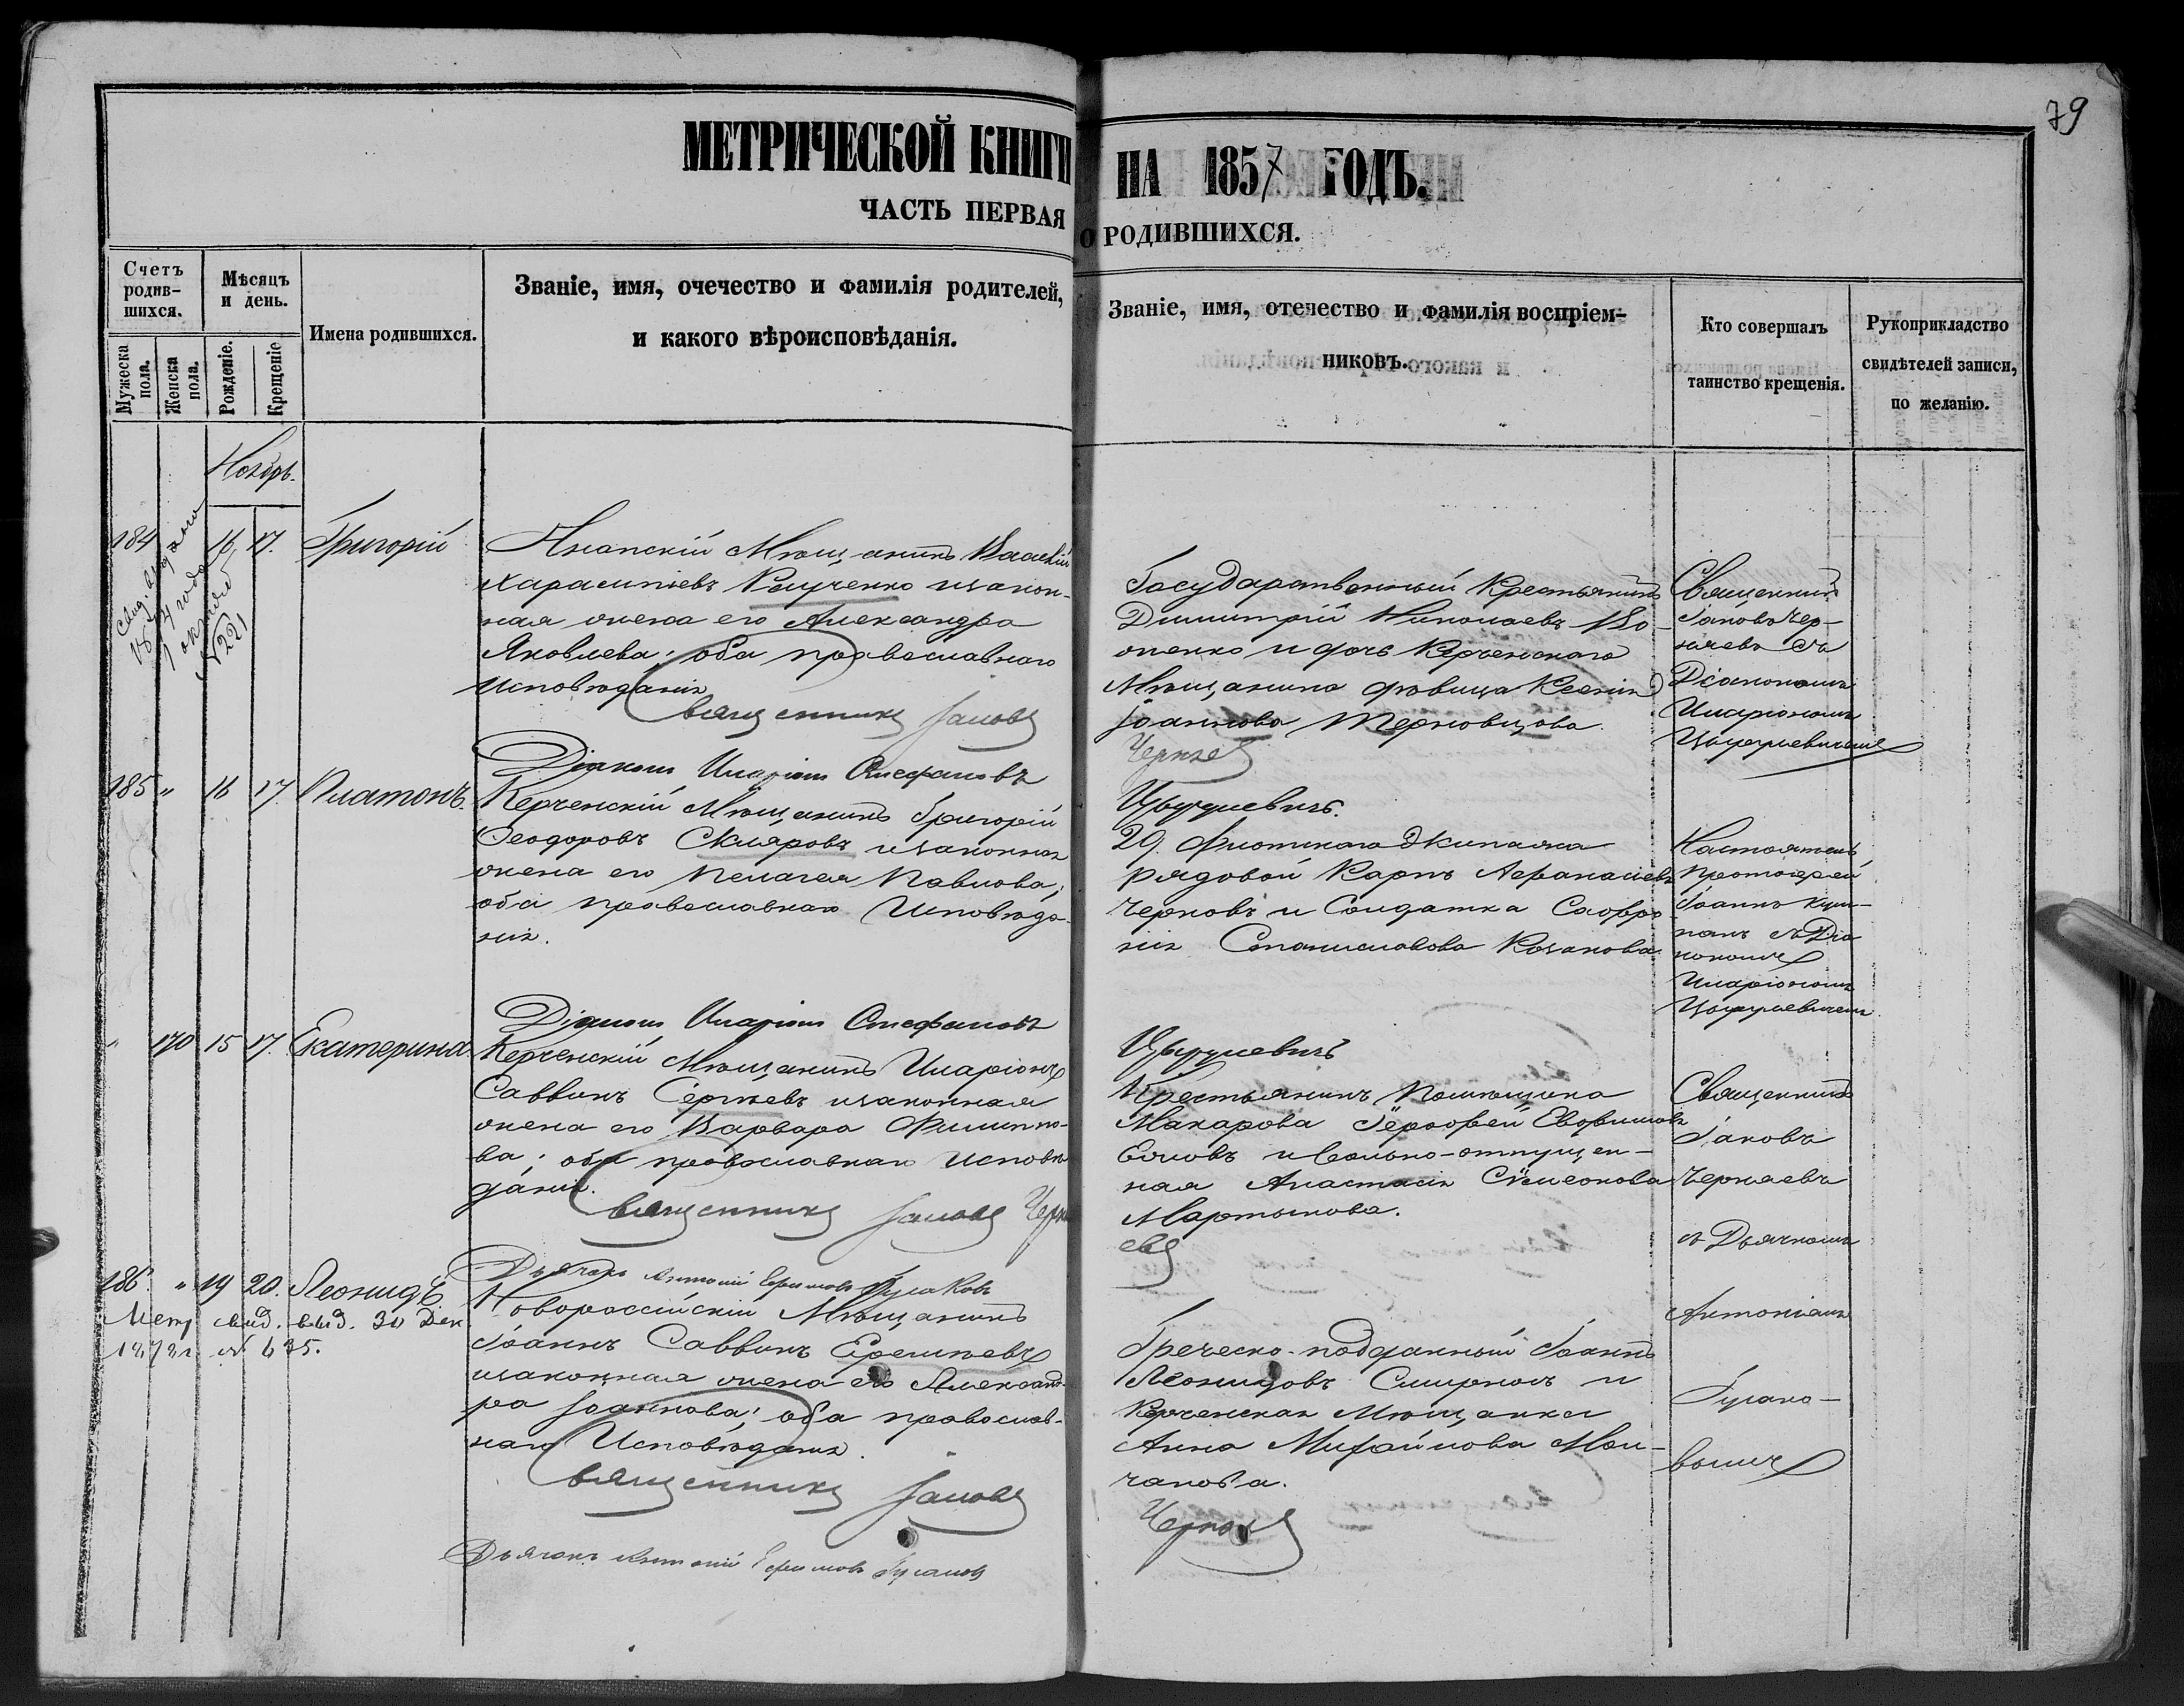 79
МЕТРИЧЕСКОЙ КНИГИ НА 1857 ГОДЪ.
ЧАСТЬ ПЕРВАЯ О РОДИВШИХСЯ.
Счетъ родив-шихся.
Мужеска пола.
Женска пола.
Мѣсяцъ и день.
Рожденіе.
Крещеніе
Имена родившихся.
Званіе, имя, очечество и фамилія родителей,
и какого вѣроисповѣданія.
Званіе, имя, отечество и фамилія воспріем-
никовъ.
Кто совершалъ
таинство крещенія.
Рукоприкладство
свидѣтелей записи,
по желанію.
Ноябрь.
184 16 17. Григорій
№ 221
Анапскій Мѣщанинъ Василій
Харалампіевъ и закон-
ная жена его Александра
Яковлева; оба православнаго
Исповѣданія
Священникъ Іаковъ
Черняевъ
Государственный Крестьянинъ
Димитрій Николаевъ
и дочь Керченскаго
Мѣщанина дѣвица Ксенія
Іоаннова Терновцова.
Священникъ
Іаковъ Чер-
няевъ съ
Діакономъ
Иларіономъ
Діаконъ Иларіонъ Стефановъ
185 " 16 17. Платонъ.
Керченскій Мѣщанинъ Григорій
Феодоровъ Скляровъ и законная
жена его Пелагея Павлова;
оба православнаго Исповѣда-
нія.
29. Флотскаго Экипажа
рядовой Карпъ Афанасіевъ
Черновъ и Солдатка Софро-
нія Станиславова Казакова
Настоятель
Протоіерей
Іоаннъ
съ Діа-
кономъ
Иларіономъ
Діаконъ Иларіонъ Стефановъ
" 170 15 17. Екатерина
Керченскій Мѣщанинъ Иларіонъ
Саввинъ Сергѣевъ и законная
жена его Варвара Филиппо-
ва; оба православнаго Исповѣ-
данія.
Священникъ Іаковъ Черня-
евъ
Крестьянинъ Помѣщика
Макарова Ерофей Евфимовъ
и вольно-отпущен-
ная Анастасія Сѵмеонова
Мартынова.
Священникъ
Іаковъ
Черняевъ
съ Дьячкомъ
Антоніемъ
Дьячокъ Антоній Ефимовъ
186. " 19 20. Леонидъ
Метр свид. выд. 30 Дек
1872 г № 635.
Новороссійскій Мѣщанинъ
Іоаннъ Саввинъ Еремѣевъ
и законная жена его Александ-
ра Іоаннова; оба православ-
наго Исповѣданія.
Священникъ Іаковъ
Черняевъ
Греческо-подданный Іоаннъ
Леонидовъ и
Керченская Мѣщанка
Анна Михайлова Мол-
чанова.
Дьячокъ Антоній Ефимовъ